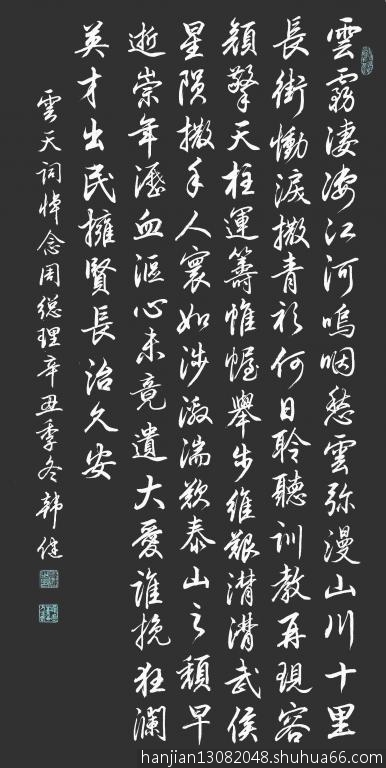 雲霧淒淒江河嗚咽愁雲弥漫山川十里
長街慟淚撒青衫何日聆聽训教再現容
顏擎天柱運籌帷幄舉步維艱潸潸武侯
星陨撒手人寰如涉激湍歎泰山之頹早
逝崇年瀝血漚心未竟遺大愛誰挽狂瀾
英才出民擁賢長治久安
雲天词悼念周總理辛丑季冬韩健
hanjian13082048.shuhua66.com